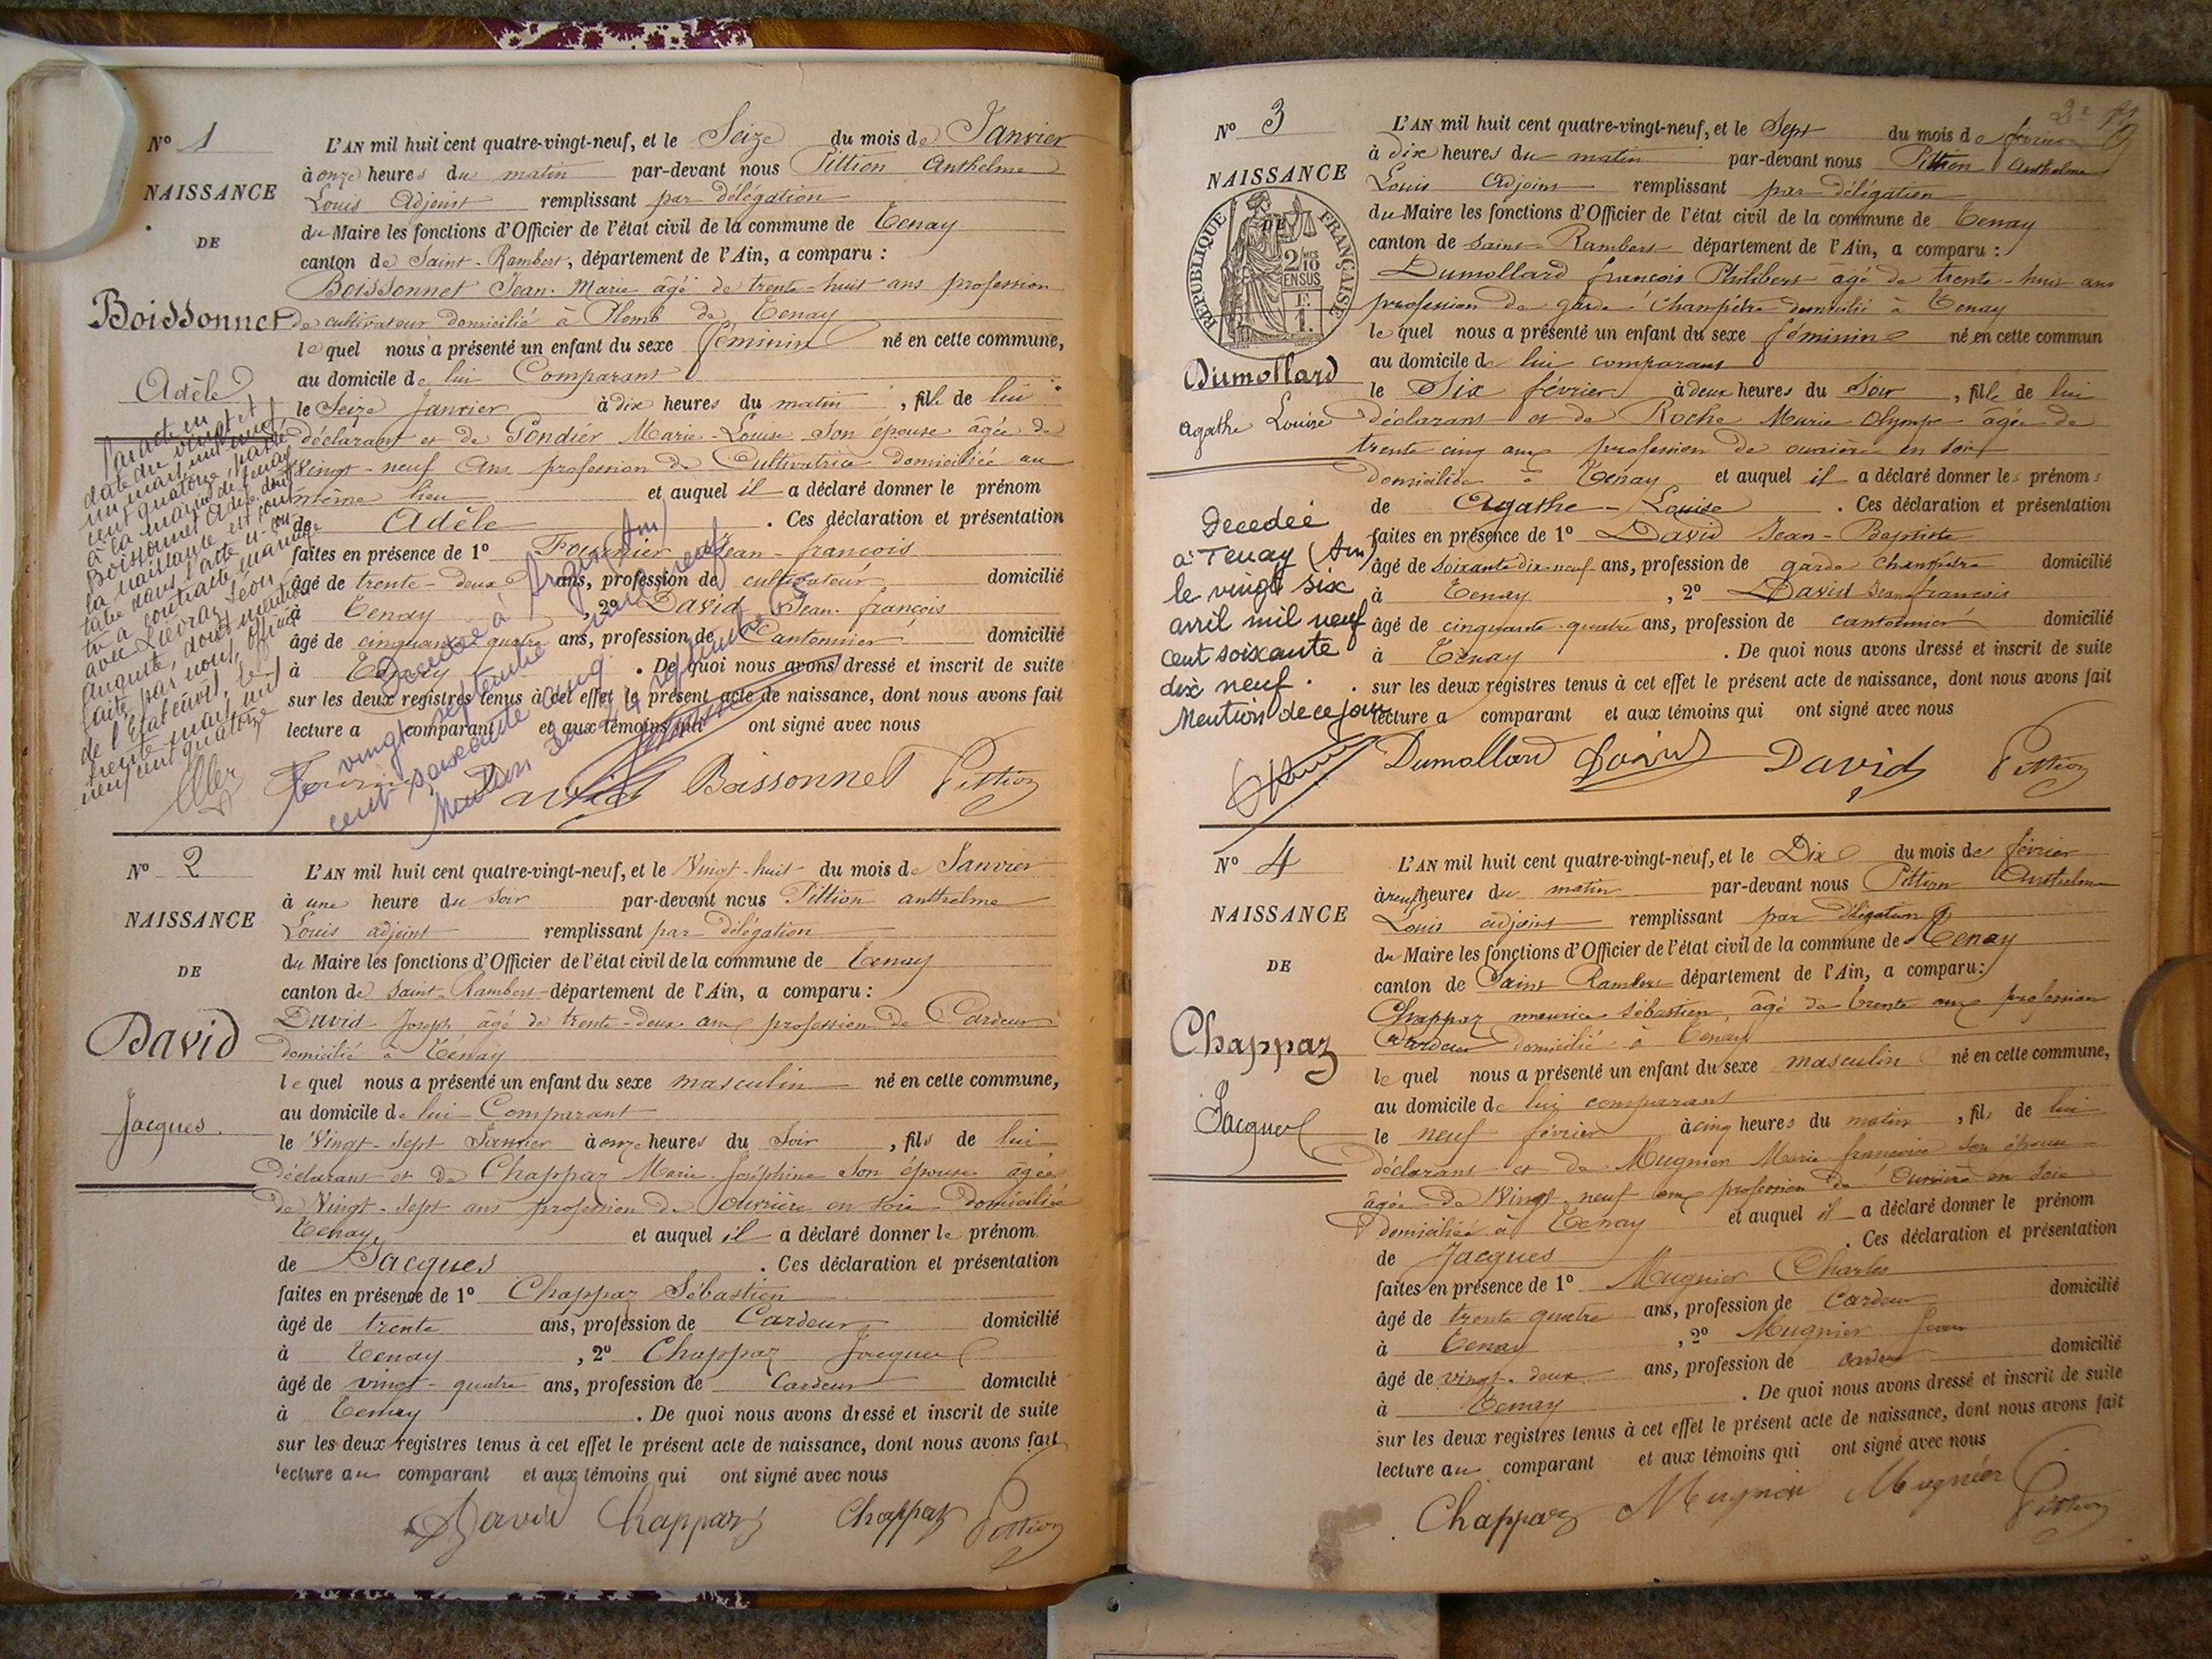 N° 1
NAISSANCE
DE
Boissonnet
Adèle
L'AN mil huit cent quatre-vingt-neuf, et le Seize du mois de Janvier
à onze heures du matin par-devant nous Pittion Anthelme
Louis Adjoint remplissant par délégation
du Maire les fonctions d'Officier de l'état civil de la commune de Tenay
canton de Saint-Rambert, département de l'Ain, a comparu :
Boissonnet Jean-Marie âgé de trente-huit ans profession
de cultivateur domicilié à Plomb de Tenay
lequel nous a présenté un enfant du sexe féminin né en cette commune,
au domicile de lui Comparant
le Seize Janvier à dix heures du matin, fille de lui
déclarant et de Pondier Marie-Louise son épouse âgée de
Vingt-neuf Ans profession de Cultivatrice domiciliée au
même lieu et auquel il a déclaré donner le prénom
de Adèle. Ces déclaration et présentation
faites en présence de 1° Fournier Jean-françois
âgé de trente-deux ans, profession de cultivateur domicilié
à Tenay, 2° David Jean-françois
âgé de cinquante-quatre ans, profession de Cantonnier domicilié
à Tenay. De quoi nous avons dressé et inscrit de suite
sur les deux registres tenus à cet effet le présent acte de naissance, dont nous avons fait
lecture a comparant et aux témoins qui ont signé avec nous
Boissonnet Pittion
Par acte en
date du vingt et
un mars mil neuf
cent quatorze, passé
à la mairie de Tenay
Boissonnet Adèle dont
la naissance est cons
tatée dans l'acte ci-con
tre a contracté mariage
avec Liévraz Léon
Auguste, dont mention
faite par nous, officier
de l'Etat civil, le
trente mars mil
neuf cent quatorze
Décédée à (Ain)
le vingt septembre mil neuf
cent soixante cinq
Mention
N° 2
NAISSANCE
DE
David
Jacques
L'AN mil huit cent quatre-vingt-neuf, et le Vingt-huit du mois de Janvier
à une heure du soir par-devant nous Pittion anthelme
Louis adjoint remplissant par délégation
du Maire les fonctions d'Officier de l'état civil de la commune de Tenay
canton de Saint-Rambert département de l'Ain, a comparu :
David Joseph âgé de trente-deux ans profession de Cardeur
domicilié à Tenay
lequel nous a présenté un enfant du sexe masculin né en cette commune,
au domicile de lui Comparant
le Vingt-sept Janvier à onze heures du Soir, fils de lui
déclarant et de Chappaz Marie-Joséphine son épouse âgée
de Vingt-sept ans profession de ouvrière en soie domiciliée
Tenay et auquel il a déclaré donner le prénom
de Jacques. Ces déclaration et présentation
faites en présence de 1° Chappaz Sébastien
âgé de trente ans, profession de Cardeur domicilié
à Tenay, 2° Chappaz Jacques
âgé de vingt-quatre ans, profession de Cardeur domicilié
à Tenay. De quoi nous avons dressé et inscrit de suite
sur les deux registres tenus à cet effet le présent acte de naissance, dont nous avons fait
lecture au comparant et aux témoins qui ont signé avec nous
David Chappaz Chappaz Pittion
N° 3
NAISSANCE
DE
RÉPUBLIQUE FRANÇAISE
2/10 EN SUS
Dumollard
Agathe Louise
L'AN mil huit cent quatre-vingt-neuf, et le Sept du mois de février
à dix heures du matin par-devant nous Pittion Anthelme
Louis Adjoint remplissant par délégation
du Maire les fonctions d'Officier de l'état civil de la commune de Tenay
canton de Saint-Rambert département de l'Ain, a comparu :
Dumollard françois Philibert âgé de trente-huit ans
profession de garde-Champêtre domicilié à Tenay
lequel nous a présenté un enfant du sexe féminin né en cette commun
au domicile de lui comparant
le Six février à deux heures du Soir, fille de lui
déclarant et de Roche Marie Olympe âgée de
trente cinq ans profession de ouvrière en soie
domiciliée à Tenay et auquel il a déclaré donner les prénoms
de Agathe-Louise. Ces déclaration et présentation
faites en présence de 1° David Jean-Baptiste
âgé de soixante dix-neuf ans, profession de garde champêtre domicilié
à Tenay, 2° David Jean françois
âgé de cinquante-quatre ans, profession de cantonnier domicilié
à Tenay. De quoi nous avons dressé et inscrit de suite
sur les deux registres tenus à cet effet le présent acte de naissance, dont nous avons fait
lecture a comparant et aux témoins qui ont signé avec nous
Dumollard David David Pittion
Décédée
à Tenay (Ain)
le vingt six
avril mil neuf
cent soixante
dix neuf.
Mention de ce jour
N° 4
NAISSANCE
DE
Chappaz
Jacques
L'AN mil huit cent quatre-vingt-neuf, et le Dix du mois de février
à neuf heures du matin par-devant nous Pittion Anthelme
Louis adjoint remplissant par délégation
du Maire les fonctions d'Officier de l'état civil de la commune de Tenay
canton de Saint Rambert département de l'Ain, a comparu :
Chappaz maurice sébastien, âgé de trente ans profession
Cardeur domicilié à Tenay
lequel nous a présenté un enfant du sexe masculin né en cette commune,
au domicile de lui comparant
le neuf février à cinq heures du matin, fils de lui
déclarant et de Mugnier Marie francoise son épouse
âgée de Vingt-neuf ans profession de Ouvrière en soie
domiciliée à Tenay et auquel il a déclaré donner le prénom
de Jacques. Ces déclaration et présentation
faites en présence de 1° Mugnier Charles
âgé de trente quatre ans, profession de Cardeur domicilié
à Tenay, 2° Mugnier Jean
âgé de vingt-deux ans, profession de cardeur domicilié
à Tenay. De quoi nous avons dressé et inscrit de suite
sur les deux registres tenus à cet effet le présent acte de naissance, dont nous avons fait
lecture au comparant et aux témoins qui ont signé avec nous
Chappaz Mugnier Mugnier Pittion